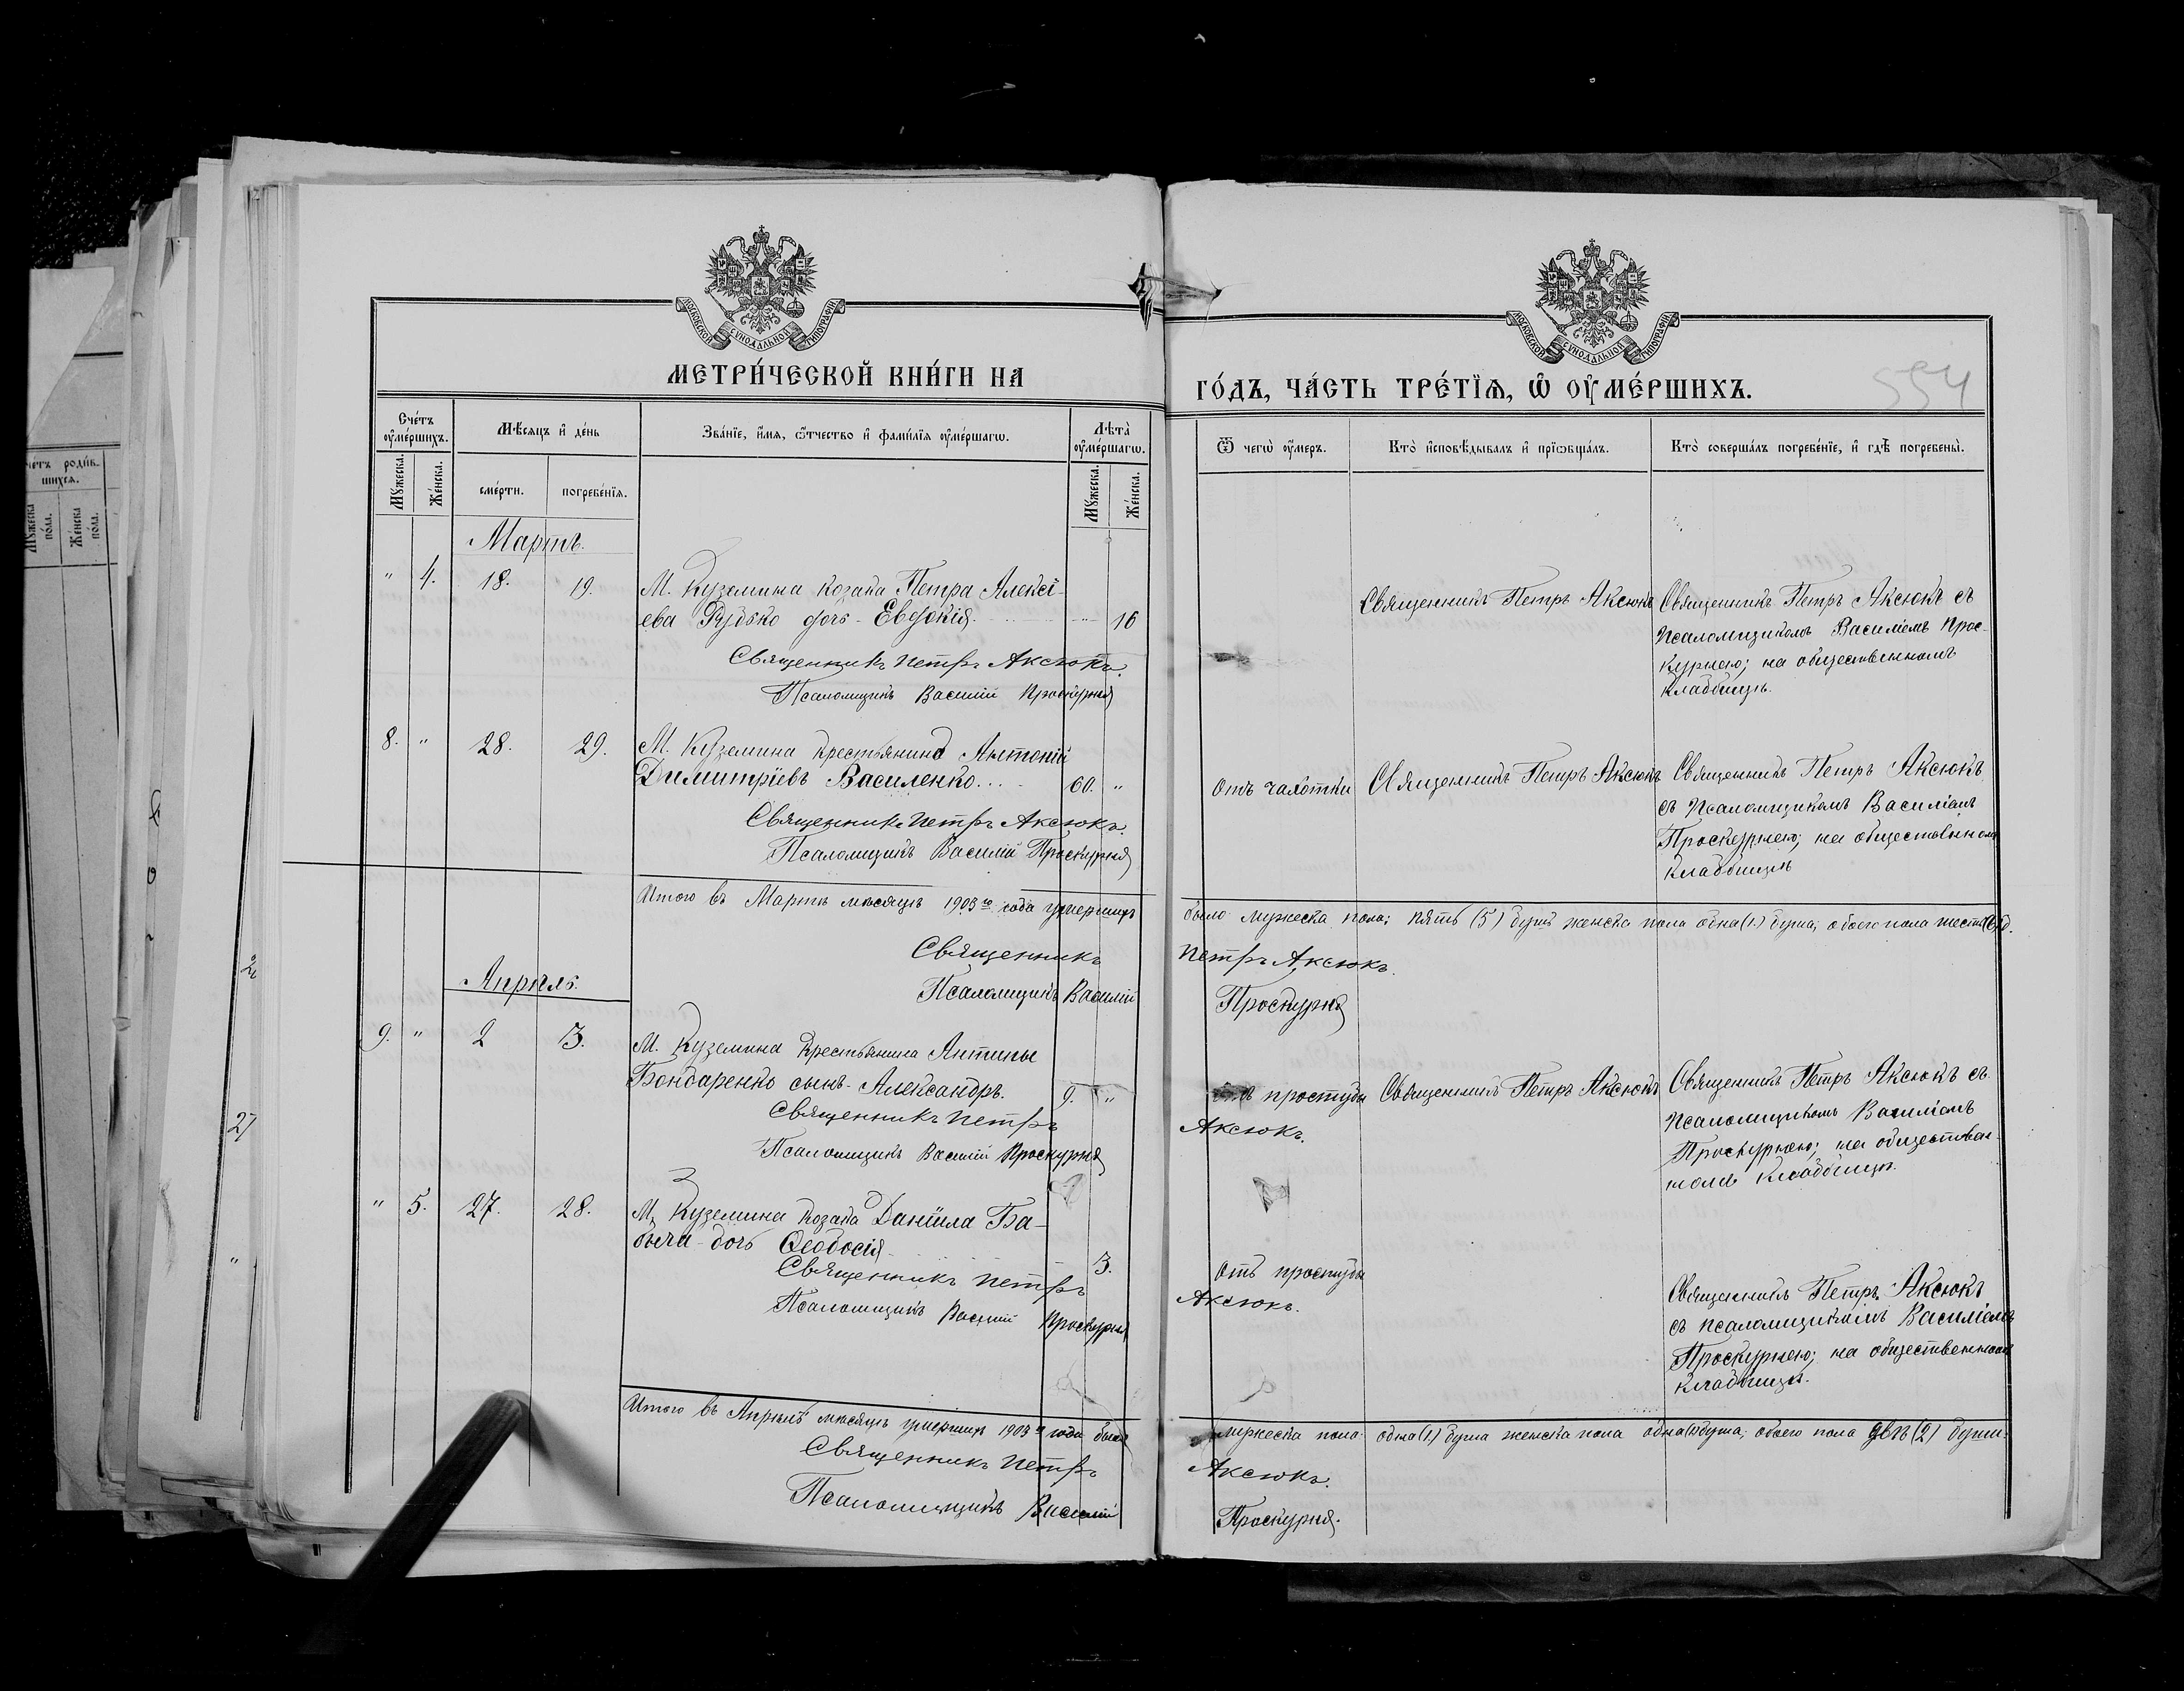 МОСКОВСКОЙ СУНОДАЛЬНОЙ ТИПОГРАФІИ
МОСКОВСКОЙ СУНОДАЛЬНОЙ ТИПОГРАФІИ
МЕТРИ́ЧЕСКОЙ КНИ́ГИ НА
ГО́ДЪ, ЧА́СТЬ ТРЕ́ТЇѦ, Ѿ ОУ҆МЕ́РШИХЪ.
554
Сче́тъ оу҆ме́ршихъ.
Мѣ́сяцъ и҆ де́нь
Зва́нїе, и҆́мя, ѻ҆́тчество и҆ фами́лїя оу҆ме́ршагѡ.
Лѣта̀ оу҆ме́ршагѡ.
Ѿ чегѡ̀ оу҆́меръ.
Кто̀ и҆сповѣ́дывалъ и҆ прїѻбща́лъ.
Кто̀ соверша́лъ погребе́нїе, и҆ гдѣ̀ погребены̀.
Мꙋжеска.
Же́нска.
сме́рти.
погребе́нїя.
Мꙋжеска.
Же́нска.
Мартъ.
" 4. 18. 19. М. Куземина козака Петра Алексі-
ева Рудько дочь - Евдокія. " 16
Священникъ Петръ Аксюкъ.
Псаломщикъ Василій Проскурня
Священникъ Петръ Аксюкъ
Священникъ Петръ Аксюкъ съ
Псаломщикомъ Василіемъ Прос-
курнею; на общественномъ
кладбищѣ.
8. " 28. 29. М. Куземина крестьянинъ Антоній
Димитріевъ Василенко... 60. "
Священникъ Петръ Аксюкъ.
Псаломщикъ Василій Проскурня
Отъ чахотки
Священникъ Петръ Аксюкъ
Священникъ Петръ Аксюкъ
съ Псаломщикомъ Василіемъ
Проскурнею; на общественномъ
кладбищѣ
Итого въ Мартѣ мѣсяцѣ 1903го года умершихъ было мужеска пола; пять (5) душъ женска пола одна (1.) душа; обоего пола шесть (6) д.
Священникъ Петръ Аксюкъ.
Псаломщикъ Василій Проскурня
Апрѣль.
9. " 2 3. М. Куземина крестьянина Антипы
Бондаренко сынъ - Александръ. 9. "
Священникъ Петръ Аксюкъ.
Псаломщикъ Василій Проскурня
простуды
Священникъ Петръ Аксюкъ
Священникъ Петръ Аксюкъ съ
Псаломщикомъ Василіемъ
Проскурнею; на обществен-
номъ кладбищѣ.
" 5. 27. 28. М. Куземина козака Даніила Ба-
дочь Ѳеодосія 3.
Священникъ Петръ Аксюкъ.
Псаломщикъ Василій Проскурня
Отъ простуды
Священникъ Петръ Аксюкъ
съ псаломщикомъ Василіемъ
Проскурнею; на общественномъ
кладбищѣ.
Итого въ Апрѣлѣ мѣсяцѣ умершихъ 1903го года было мужеска пола одна (1.) душа женска пола одна (1) душа; обоего пола двѣ (2) души.
Священникъ Петръ Аксюкъ.
Псаломщикъ Василій Проскурня.